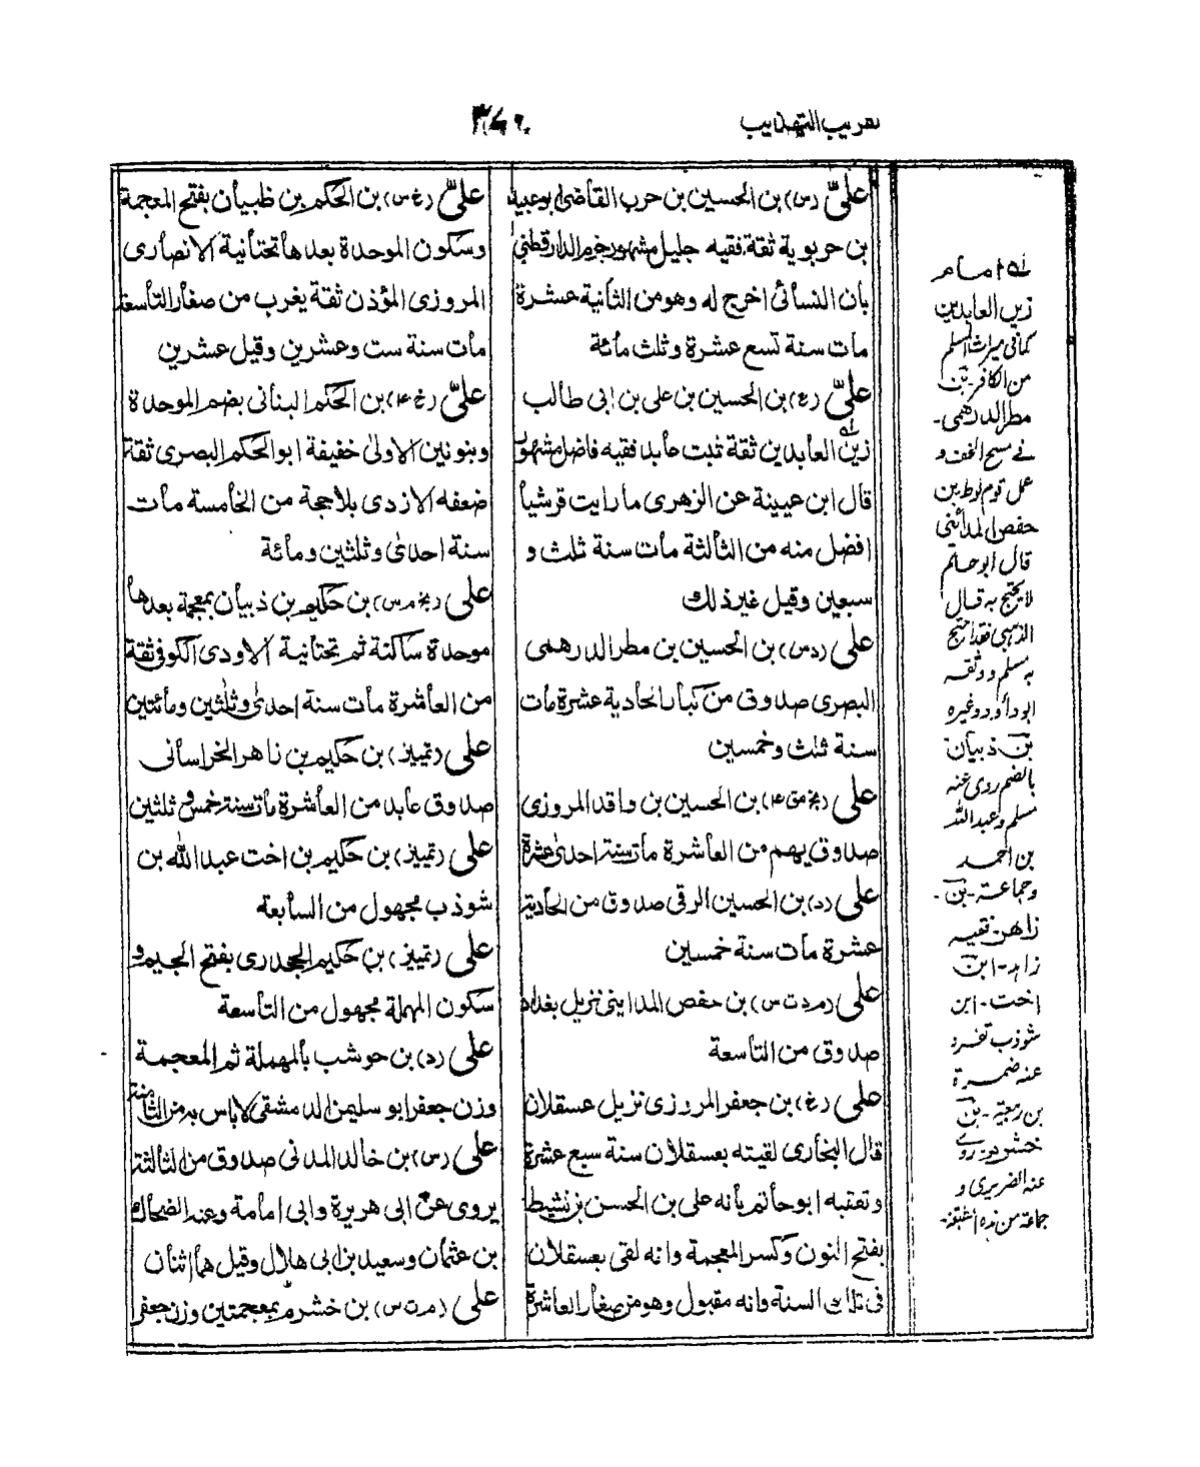 تقريب التهذيب
علىّ (س) بن الحسين بن حرب القاضى ابو عبيد
بن حربوية ثقة فقيه جليل مشهور جزم الدارقطنى
بان النسائى اخرج له وهو من الثانية عشرة
مات سنة تسع عشرة وثلث مائة
علىّ (ع) بن الحسين بن على بن ابى طالب
زين العابدين ثقة ثبت عابد فقيه فاضل مشهور
قال ابن عيينة عن الزهرى ما رايت قرشيا
افضل منه من الثالثة مات سنة ثلث و
سبعين وقيل غير ذلك
على (دس) بن الحسين بن مطر الدرهمى
البصرى صدوق من كبار الحادية عشرة مات
سنة ثلث وخمسين
على (بخ مق ٤) بن الحسين بن واقد المروزى
صدوق يهم من العاشرة مات سنة احدى عشرة
على (د) بن الحسين الرقى صدوق من الحادية
عشرة مات سنة خمسين
على (مدت س) بن حفص المداينى نزيل بغداد
صدوق من التاسعة
على (خ) بن جعفر المروزى نزيل عسقلان
قال البخارى لقيته بعسقلان سنة سبع عشرة
وتعقبه ابو حاتم بانه على بن الحسن بن نشيط
بفتح النون وكسر المعجمة وانه لقى بعسقلان
فى تلك السنة وانه مقبول وهو من صغار العاشرة
علىّ (خ س) بن الحكم بن ظبيان بفتح المعجمة
وسكون الموحدة بعدها تحتانية الانصارى
المروزى المؤذن ثقة يغرب من صغار التاسعة
مات سنة ست وعشرين وقيل عشرين
علىّ (خ ٤) بن الحكم البنانى بضم الموحدة
وبنونين الاولى خفيفة ابو الحكم البصرى ثقة
ضعفه الازدى بلا حجة من الخامسة مات
سنة احدى وثلثين ومائة
على (بخ م س) بن حكيم بن ذبيان بمعجمة بعدها
موحدة ساكنة ثم تحتانية الاودى الكوفى ثقة
من العاشرة مات سنة احدى وثلثين ومائتين
على (تمييز) بن حكيم بن زاهر الخراسانى
صدوق عابد من العاشرة مات سنة خمس وثلثين
على (تمييز) بن حكيم بن اخت عبد الله بن
شوذب مجهول من السابعة
على (تمييز) بن حكيم الجحدرى بفتح الجيم و
سكون المهملة مجهول من التاسعة
على (د) بن حوشب بالمهملة ثم المعجمة
وزن جعفر ابو سليمن الدمشقى لاباس به من الثامنة
على (س) بن خالد المدنى صدوق من الثالثة
يروى عن ابى هريرة وابى امامة وعنه الضحاك
بن عثمان وسعيد بن ابى هلال وقيل هما اثنان
على (م ت س) بن خشرم بمعجمتين وزن جعفر
له امام
زين العابدين
كما فى ميراث المسلم
من الكافر - بن
مطر الدرهمى -
فى مسح الخف و
عمل قوم لوط بن
حفص المدائنى
قال ابو حاتم
لا يحتج به قال
الذهبى فقد احتج
به مسلم ووثقه
ابو داؤد وغيره
بن ذبيان
بالضم روى عنه
مسلم وعبد الله
بن احمد
وجماعة - بن -
زاهر - نقيه
زاهد - ابن
اخت - ابن
شوذب تفرد
عنه ضمرة
بن ربيعة - بن
خشرم - روى
عنه الفربرى و
جماعة من